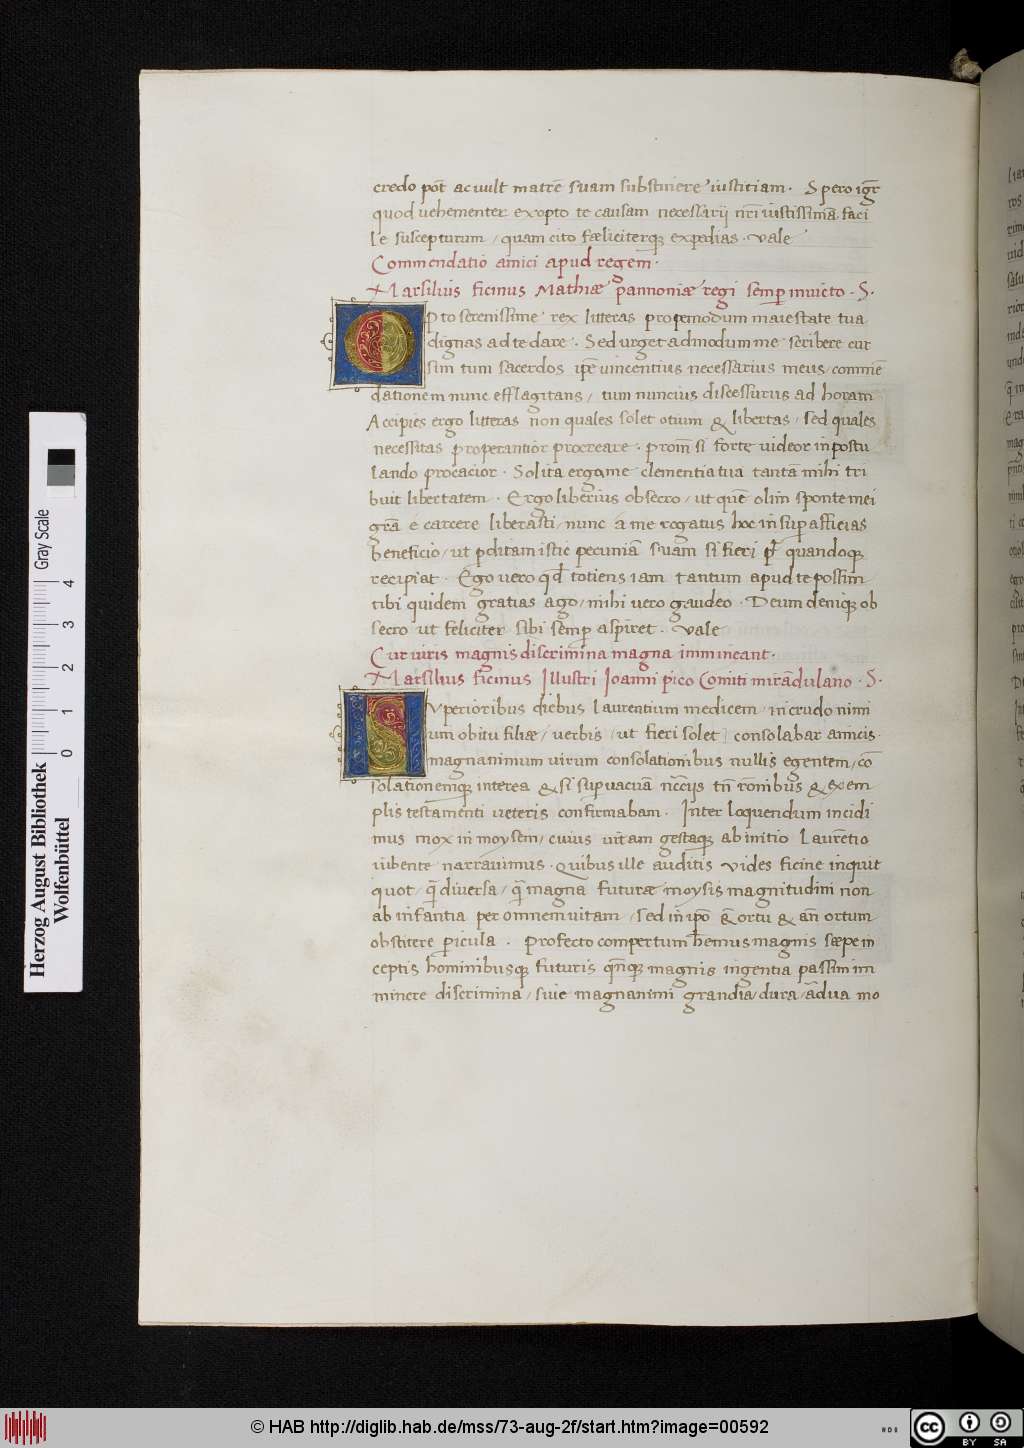 credo pōt ac vult matrē suam substinere iustitiam. Spero igr̄
quod vehementer exopto te causam necessarij nr̄i iustissimā faci
le suscepturum / quam cito fæliciterq; expedias. Vale
Commendatio amici apud regem.
Marsilius ficinus Mathiæ pannoniæ regi semp invicto. S.
Opto serenissime rex litteras propemodum maiestate tua
dignas ad te dare. Sed urget admodum me scribere cur
sim tum sacerdos ip̄e vincentius necessarius meus / commē
dationem nunc efflagitans / tum nuncius discessurus ad horam
Accipies ergo litteras non quales solet otium & libertas / sed quales
necessitas properantior procreare. prom̄ si forte videor in postu
lando procacior. Solita ergo me clementia tua tantā mihi tri
buit libertatem. Ergo liberius obsecro / ut quē olim sponte mei
gr̄a e carcere liberasti / nunc a me rogatus hoc insup afficias
beneficio / ut pditam istic pecuniā suam si fieri pt quandoq;
recipiat. Ego vero qđ totiens iam tantum apud te possim
tibi quidem gratias ago / mihi vero gaudeo. Deum deniq; ob
secro ut feliciter sibi semp aspiret. Vale
Cur viris magnis discrimina magna immineant.
Marsilius ficinus Illustri Joanni pico Comiti mirādulano. S.
Superioribus diebus laurentium medicem / in crudo nimi
um obitu filiæ / verbis / ut fieri solet / consolabar amicis.
magnanimum virum consolationibus nullis egentem / cō
solationemq; interea & si supvacuā nr̄ciis tn̄ rōnibus & exem
plis testamenti veteris confirmabam. Inter loquendum incidi
mus mox in moysem / cuius vitam gestaq; ab initio Laurētio
iubente narravimus. Quibus ille auditis vides ficine inquit
quot / q̄ diversa / q̄ magna futuræ moysis magnitudini non
ab infantia per omnem vitam / sed in ip̄o q̄ ortu & an̄ ortum
obstitere picula. Profecto compertum hēmus magnis sæpe in
ceptis hominibusq; futuris qn̄q; magnis ingentia passim im
minere discrimina / sive magnanimi grandia / dura / ādua mo
Herzog August Bibliothek
Wolfenbüttel
Gray Scale
0 1 2 3 4
© HAB http://diglib.hab.de/mss/73-aug-2f/start.htm?image=00592
cc BY SA